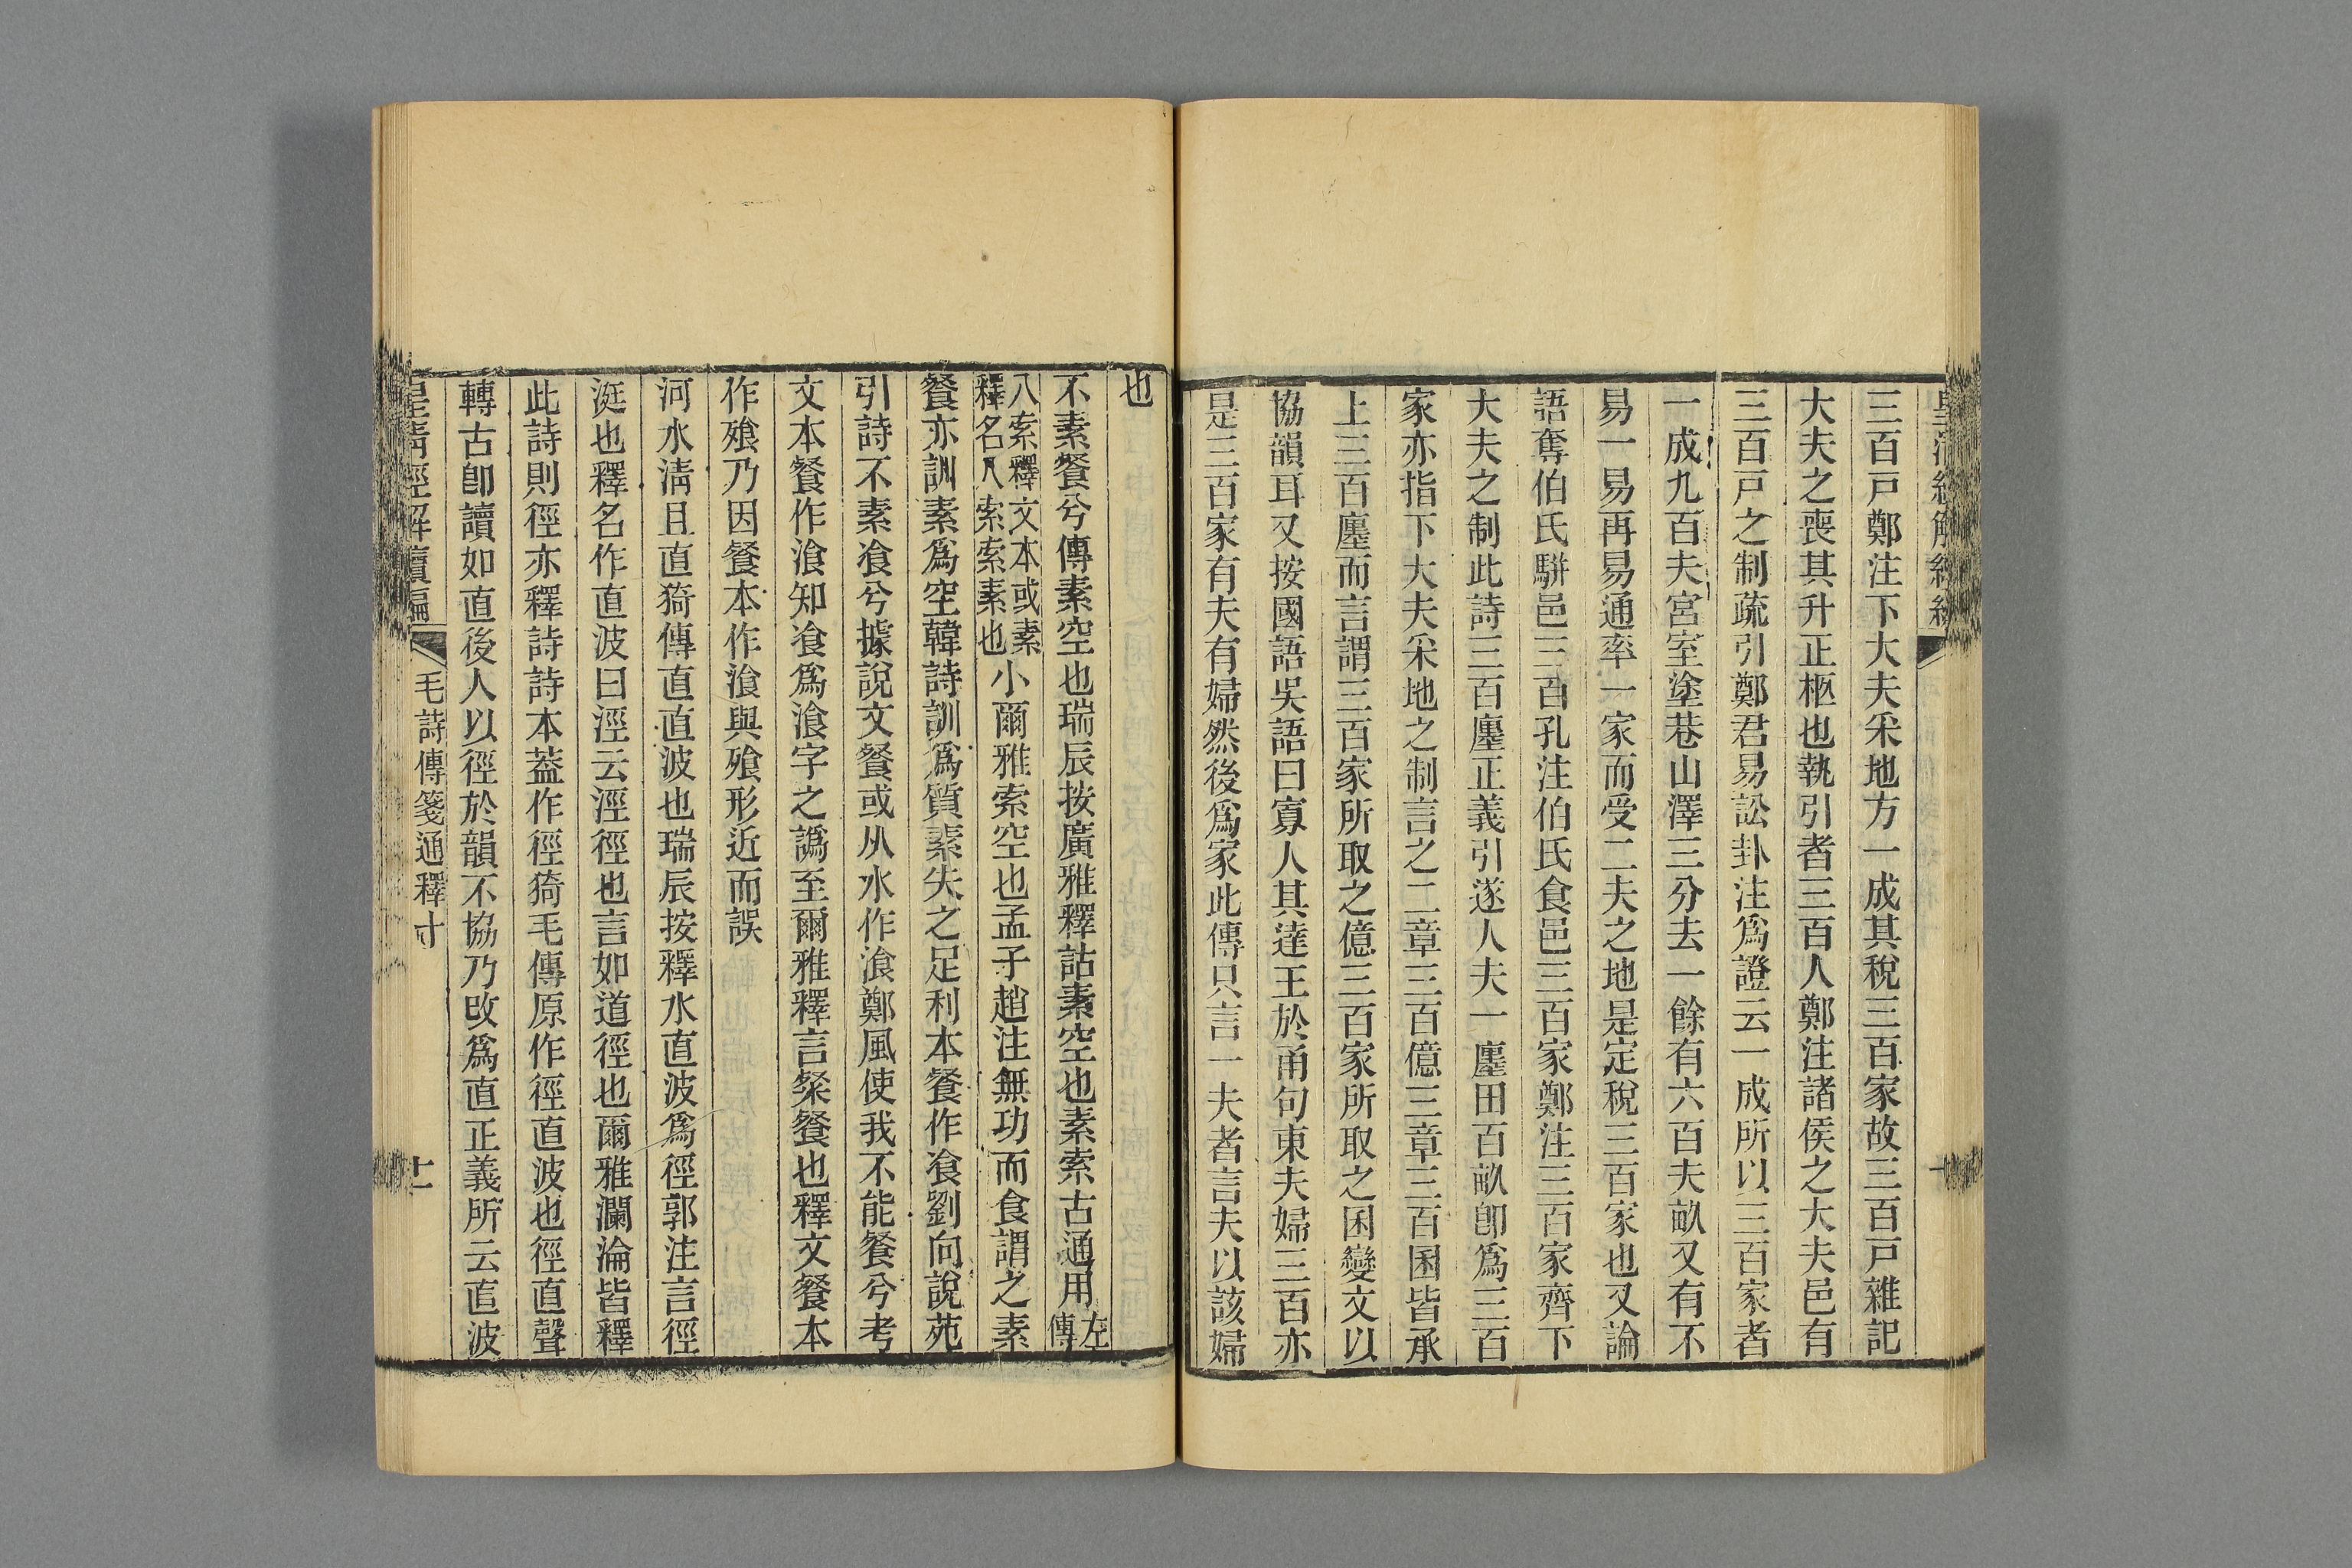 三百戸鄭注下大夫采地方一成其稅三百家故三百戸雜記
大夫之喪其升正柩也執引者三百人鄭注諸侯之大夫邑有
三百戸之制疏引鄭君易訟卦注爲證云一成所以三百家者
一成九百夫宮室塗巷山澤三分去一餘有六百夫畝又有不
易一易再易通率一家而受二夫之地是定稅三百家也又論
語奪伯氏駢邑三百孔注伯氏食邑三百家鄭注三百家齊下
大夫之制此詩三百廛正義引遂人夫一廛田百畝卽爲三百
家亦指下大夫采地之制言之二章三百億三章三百囷皆承
上三百廛而言謂三百家所取之億三百家所取之囷變文以
協韻耳又按國語吳語曰寡人其達王於甬句東夫婦三百亦
是三百家有夫有婦然後爲家此傳只言一夫者言夫以該婦
也
不素餐兮傳素空也瑞辰按廣雅釋詁素空也素索古通用左傳
八索釋文本或素釋名八索索素也小爾雅索空也孟子趙注無功而食謂之素
餐亦訓素爲空韓詩訓爲質素失之足利本餐作飡劉向說苑
引詩不素飡兮據說文餐或从水作湌鄭風使我不能餐兮考
文本餐作湌知飡爲湌字之譌至爾雅釋言粲餐也釋文餐本
作飱乃因餐本作湌與飱形近而誤
河水淸且直猗傳直直波也瑞辰按釋水直波爲徑郭注言徑
涏也釋名作直波曰涇云涇徑也言如道徑也爾雅瀾淪皆釋
此詩則徑亦釋詩詩本葢作徑猗毛傳原作徑直波也徑直聲
轉古卽讀如直後人以徑於韻不協乃改爲直正義所云直波
皇淸經解續編 毛詩傳箋通釋十 十一